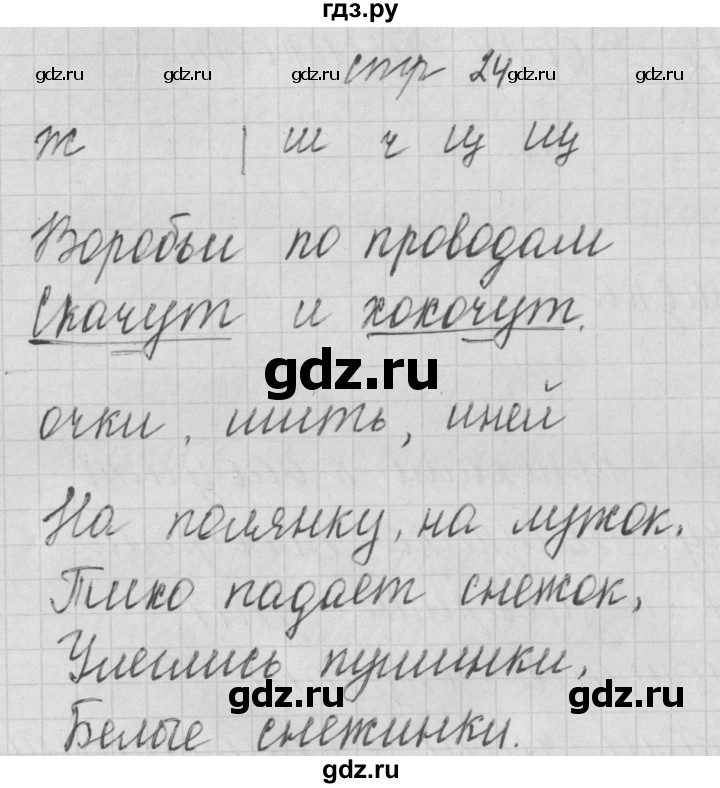 гдз.ру
стр 24
gdz.ru gdz.ru gdz.ru gdz.ru gdz.ru
ж | ш ч ц щ
Воробьи по проводам
Скачут и хохочут.
gdz.ru
очки, шить, иней
На полянку, на лужок,
Тихо падает снежок,
Улеглись пушинки,
gdz.ru gdz.ru
Белые снежинки.
gdz.ru